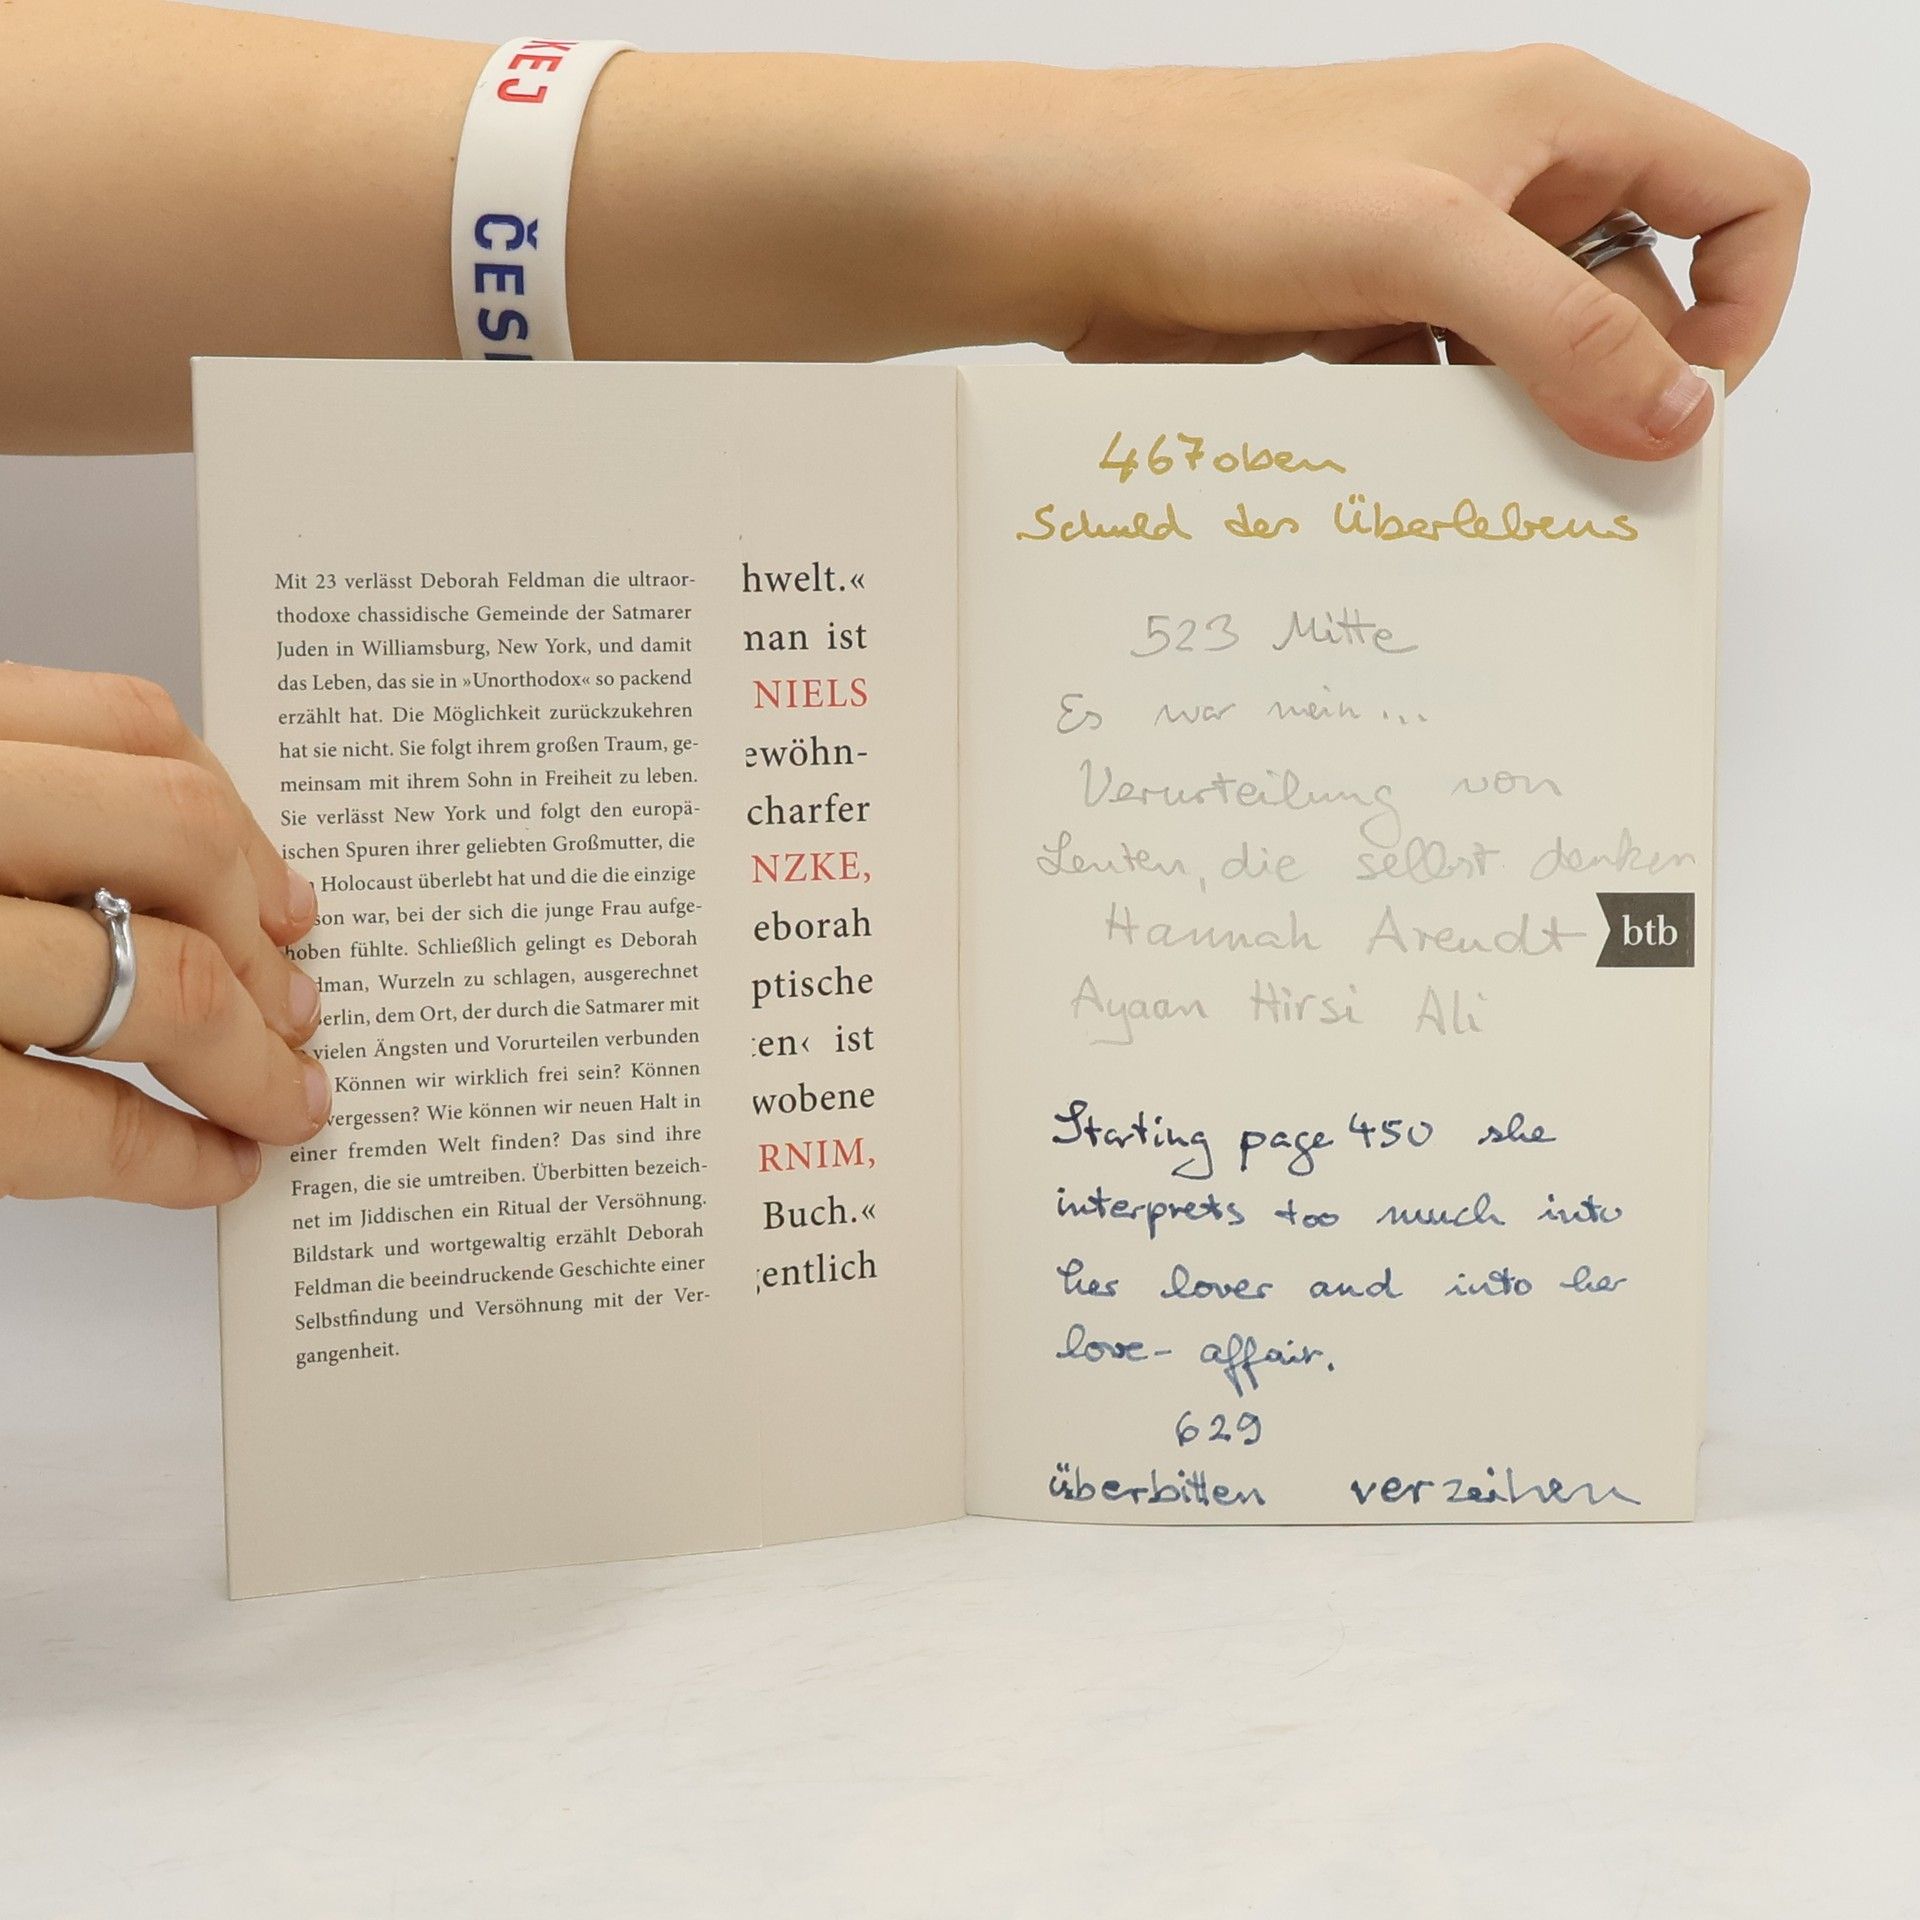 KEJ
ČES
Mit 23 verlässt Deborah Feldman die ultraor-
thodoxe chassidische Gemeinde der Satmarer
Juden in Williamsburg, New York, und damit
das Leben, das sie in »Unorthodox« so packend
erzählt hat. Die Möglichkeit zurückzukehren
hat sie nicht. Sie folgt ihrem großen Traum, ge-
meinsam mit ihrem Sohn in Freiheit zu leben.
Sie verlässt New York und folgt den europä-
ischen Spuren ihrer geliebten Großmutter, die
Holocaust überlebt hat und die die einzige
son war, bei der sich die junge Frau aufge-
hoben fühlte. Schließlich gelingt es Deborah
dman, Wurzeln zu schlagen, ausgerechnet
erlin, dem Ort, der durch die Satmarer mit
vielen Ängsten und Vorurteilen verbunden
Können wir wirklich frei sein? Können
vergessen? Wie können wir neuen Halt in
einer fremden Welt finden? Das sind ihre
Fragen, die sie umtreiben. Überbitten bezeich-
net im Jiddischen ein Ritual der Versöhnung.
Bildstark und wortgewaltig erzählt Deborah
Feldman die beeindruckende Geschichte einer
Selbstfindung und Versöhnung mit der Ver-
gangenheit.
hwelt.«
man ist
NIELS
ewöhn-
charfer
NZKE,
eborah
ptische
en‹ ist
wobene
RNIM,
Buch.«
entlich
467 oben
Schuld des Überlebens
523 Mitte
Es war mein...
Verurteilung von
Leuten, die selbst denken
Hannah Arendt
btb
Ayaan Hirsi Ali
Starting page 450 she
interprets too much into
her lover and into her
love-affair.
629
überbitten verzeihen